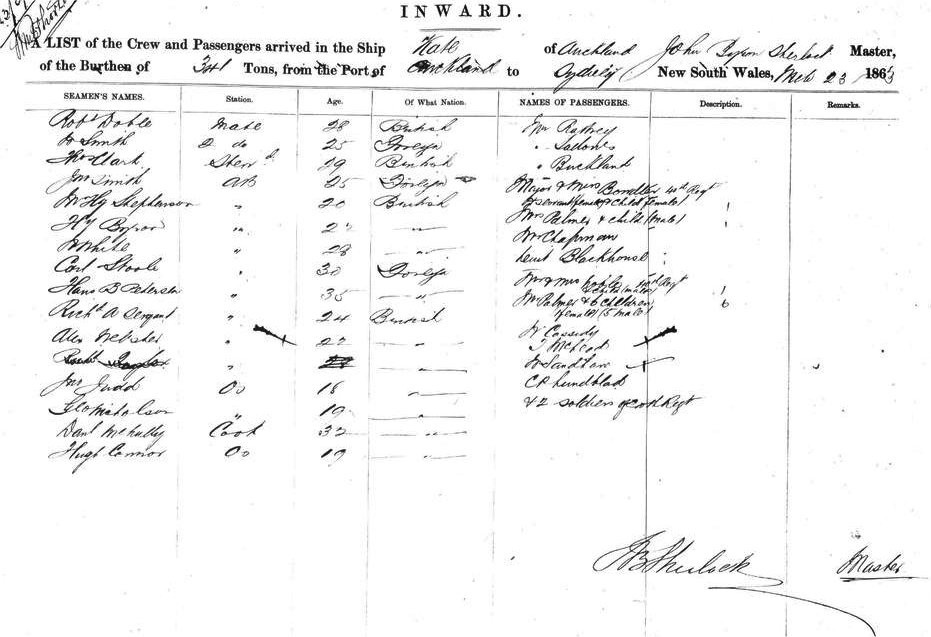 INWARD.
A LIST of the Crew and Passengers arrived in the Ship Kate of Auckland John Byron Sherlock Master,
of the Burthen of 341 Tons, from the Port of Auckland to Sydney New South Wales, 23 1863
SEAMEN'S NAMES. Station. Age. Of What Nation. NAMES OF PASSENGERS. Description. Remarks.
Robt Doble Mate 28 British Mr
W Smith 2 do 25 Foreign "
Thos Clark Stewd 29 British " Buckland
Jno Smith AB 25 Foreign Major & Mrs 40th Regt
Wm Hy Stephenson " 20 British & servant female & child female 1
Hy Byron " " Mrs Palmer & child (male) 1
W White " 28 " Mr Chapman
Carl " 30 Foreign Lieut Blackhouse
Hans B Petersen " 35 " Mr & Mrs Regt & child (male) 1
Richd A Sergant " 24 British Mr Palmer & 6 children 6
female (5 male)
Alex Webster " 22 " W Cassidy
T McLeod
" " W
Jno Judd Os 18 " C P Lundblad
Geo Nicholson " 19 " & 2 soldiers of Regt
Danl Cook 32 "
Hugh Connor Os 19 "
J B Sherlock Master